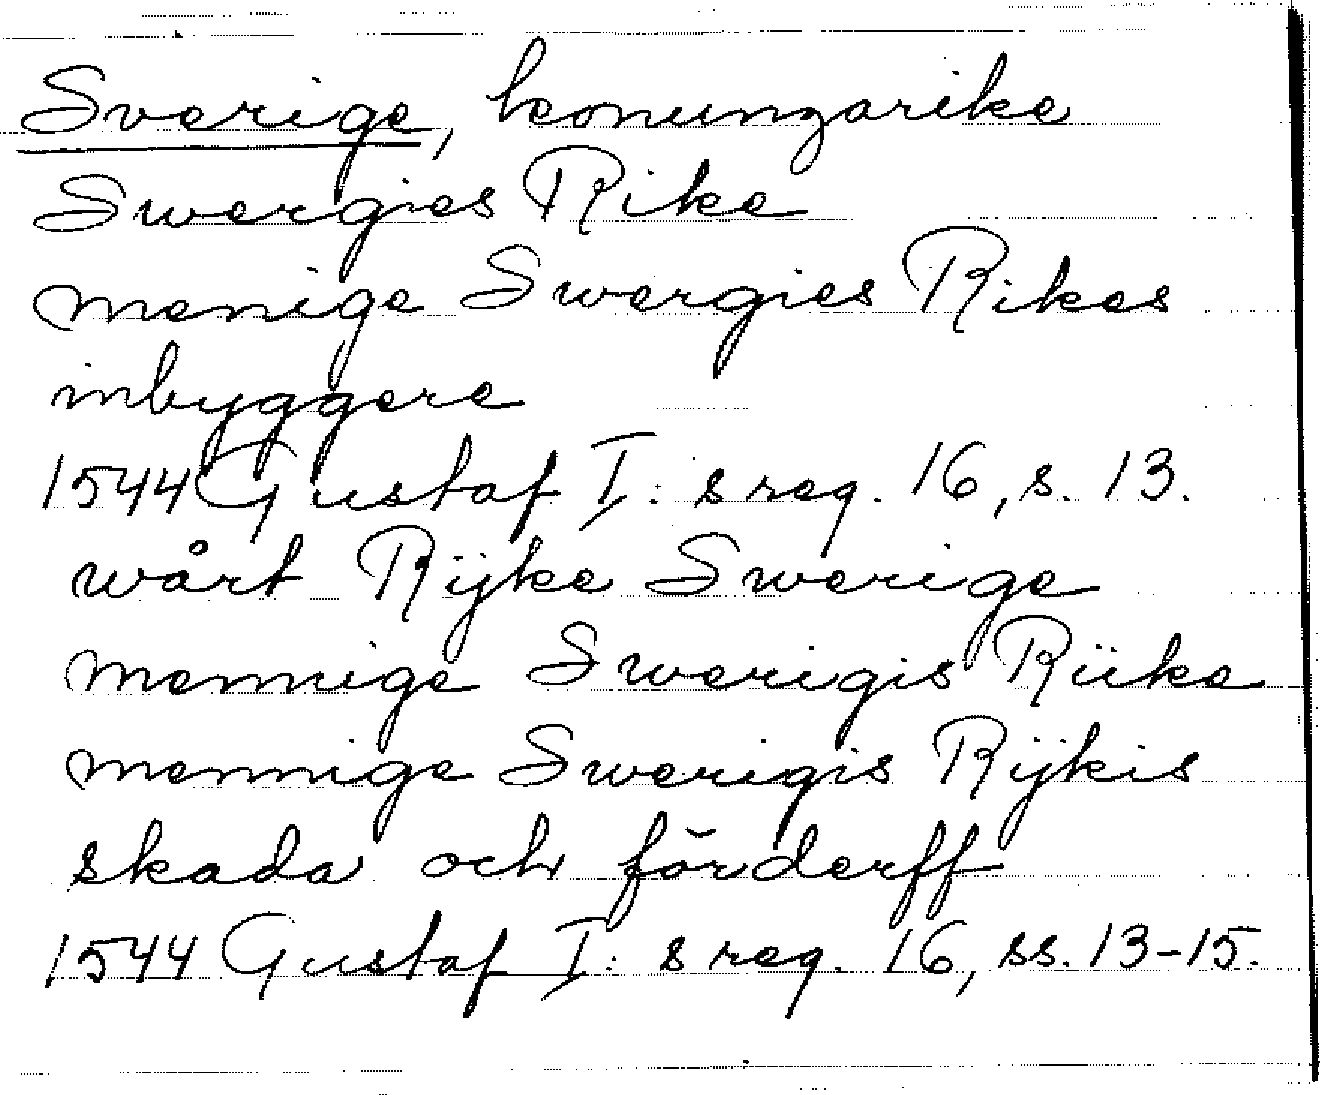 Sverige, konungarike
Swergies Rike
menige Swergies Rikes
inbyggere
1544 Gustaf I:s reg. 16, s. 13.
wårt Rijke Swerige
mennige Swerigis Riike
mennige Swerigis Rijkis
skada och förderff
1544 Gustaf I:s reg. 16, ss. 13-15.